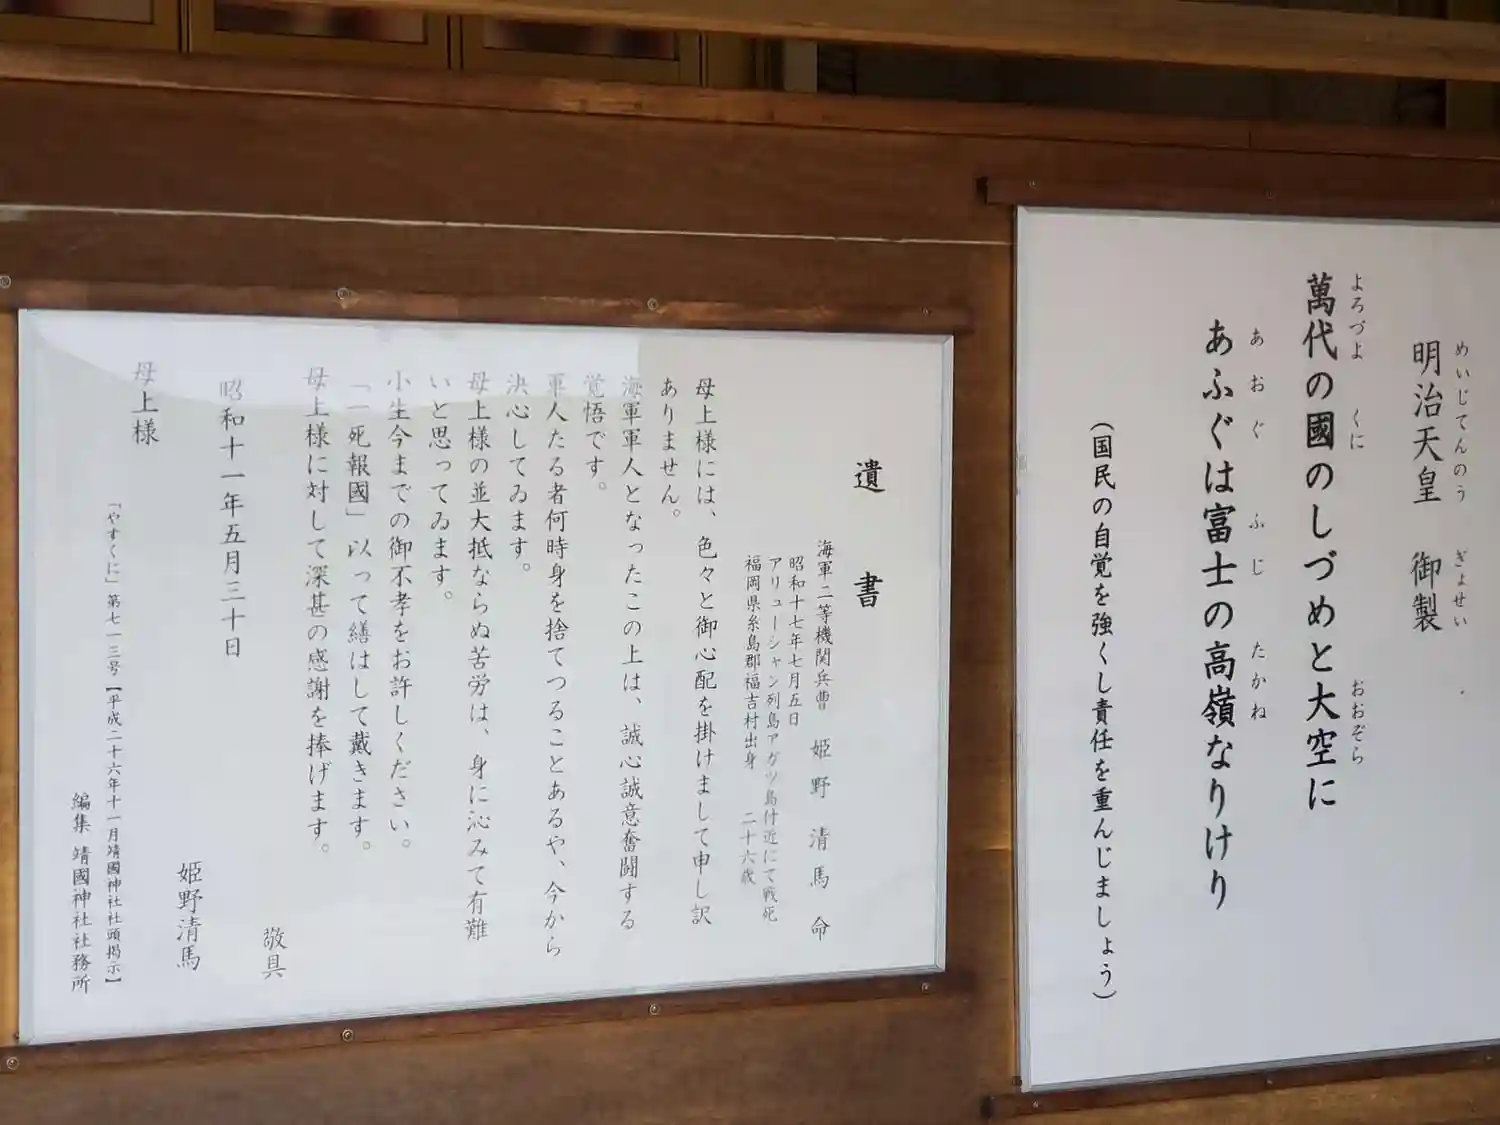 明治天皇 御製
めいじてんのう ぎょせい
萬代の國のしづめと大空に
よろづよ くに おおぞら
あふぐは富士の高嶺なりけり
あおぐ ふじ たかね
（国民の自覚を強くし責任を重んじましょう）
遺書
海軍二等機関兵曹 姫野清馬命
昭和十七年七月五日
アリューシャン列島アガツ島付近にて戦死
福岡県糸島郡福吉村出身 二十六歳
母上様には、色々と御心配を掛けまして申し訳
ありません。
海軍軍人となったこの上は、誠心誠意奮闘する
覚悟です。
軍人たる者何時身を捨てつることあるや、今から
決心してゐます。
母上様の並大抵ならぬ苦労は、身に沁みて有難
いと思ってゐます。
小生今までの御不孝をお許しください。
「一死報國」以って繕はして戴きます。
母上様に対して深甚の感謝を捧げます。
敬具
昭和十一年五月三十日
姫野清馬
母上様
「やすくに」第七一三号【平成二十六年十一月靖國神社社頭掲示】
編集 靖國神社社務所